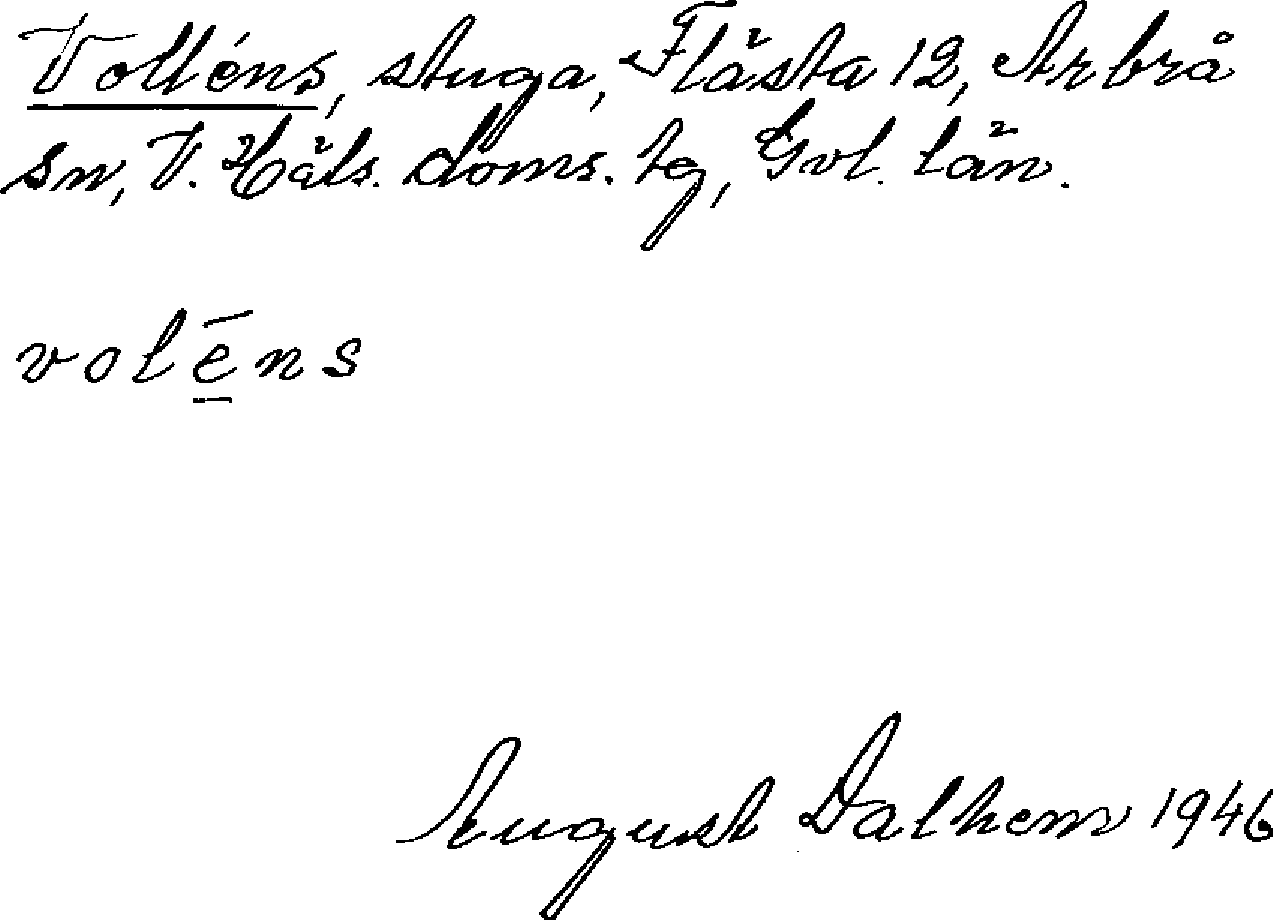 Volléns, stuga, Flästa 12, Arbrå
sn, V. Häls. doms. tg, Gvl. län.
volē̱ns
August Dalhem 1946